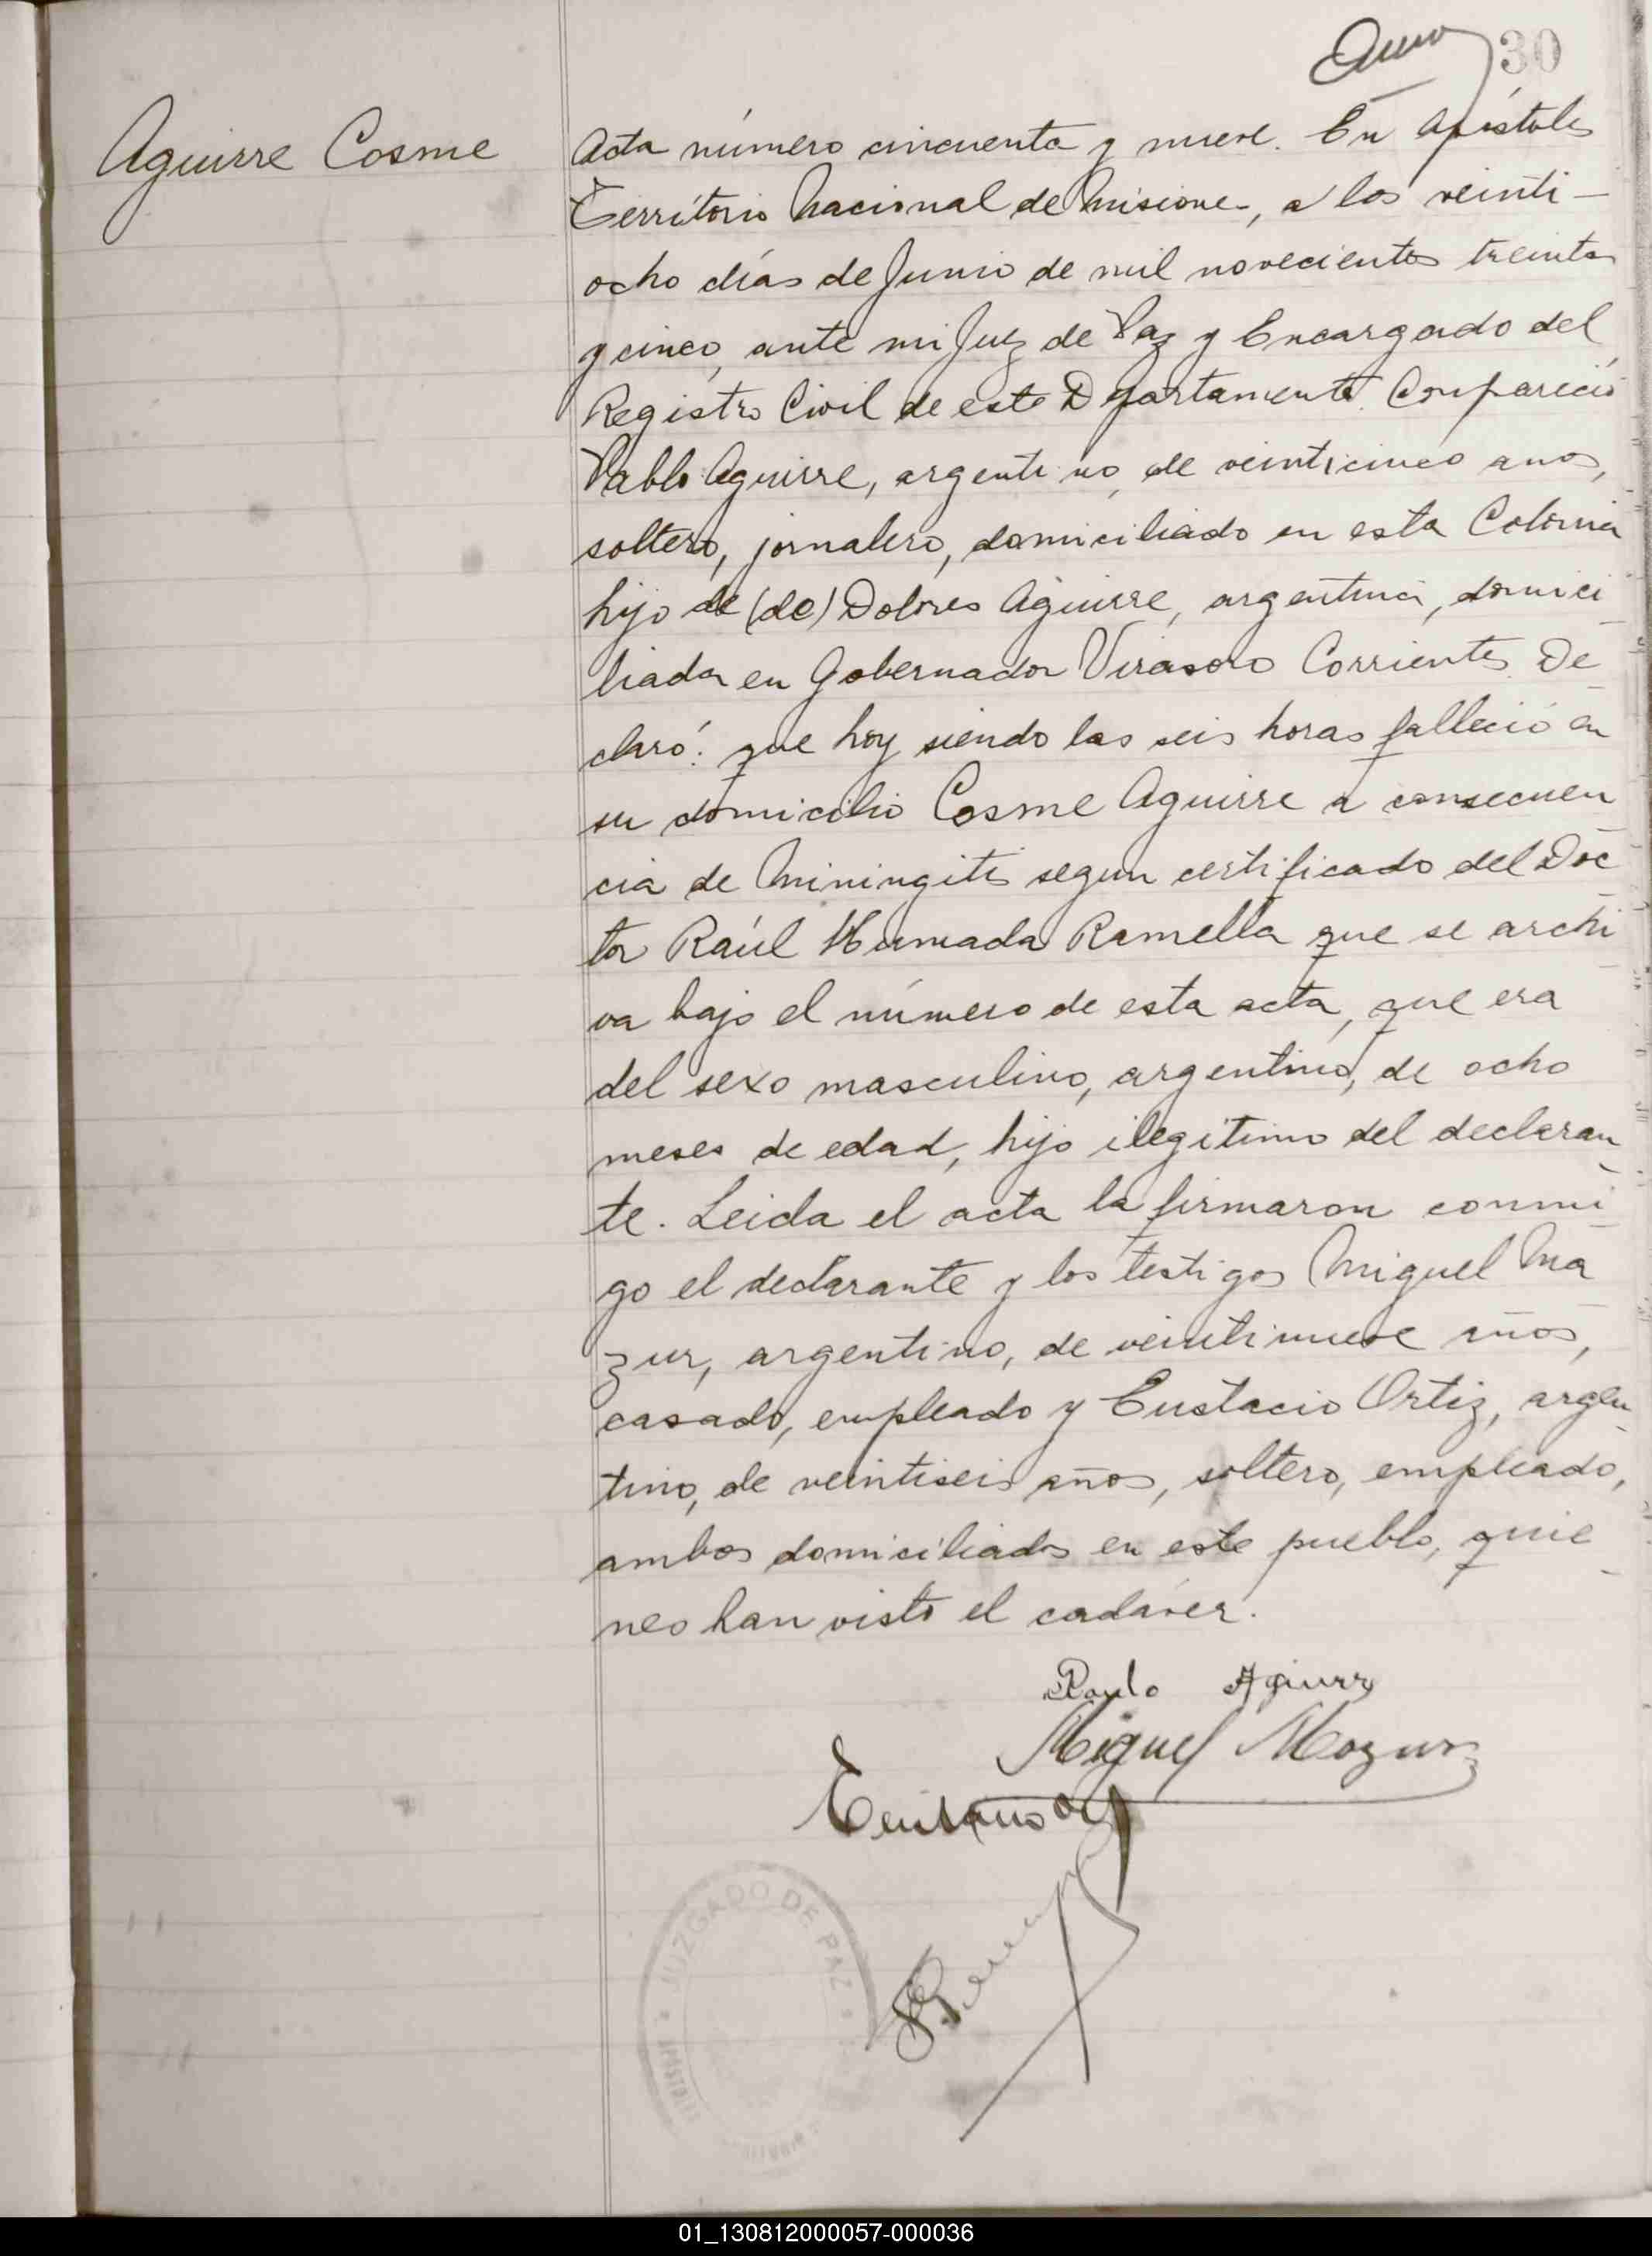 30
Aguirre Cosme
Acta número cincuenta y nueve. En Apóstoles
Territorio Nacional de Misiones, a los veinti-
ocho días de Junio de mil novecientos treinta
y cinco, ante mi Juez de Paz y Encargado del
Registro Civil de este Departamento. Compareció
Pablo Aguirre, argentino, de veinticinco anos,
soltero, jornalero, domiciliado en esta Colonia
hijo de (de) Dolores Aguirre, argentina, domici
liada en Gobernador Virasoro Corrientes. De-
claró: que hoy siendo las seis horas falleció en
su domicilio Cosme Aguirre a consecuen
cia de Miningitis segun certificado del Doc-
tor Raúl Humada Ramella que se archi-
va bajo el número de esta acta, que era
del sexo masculino, argentino, de ocho
meses de edad, hijo ilegitimo del declaran-
te. Leida el acta la firmaron conmi-
go el declarante y los testigos Miguel Ma-
zur, argentino, de veintinueve años,
casado, empleado y Eustacio Ortiz, argen-
tino, de veintiseis años, soltero, empleado,
ambos domiciliados en este pueblo, quie-
nes han visto el cadáver.
Miguel Mazur
JUZGADO DE PAZ